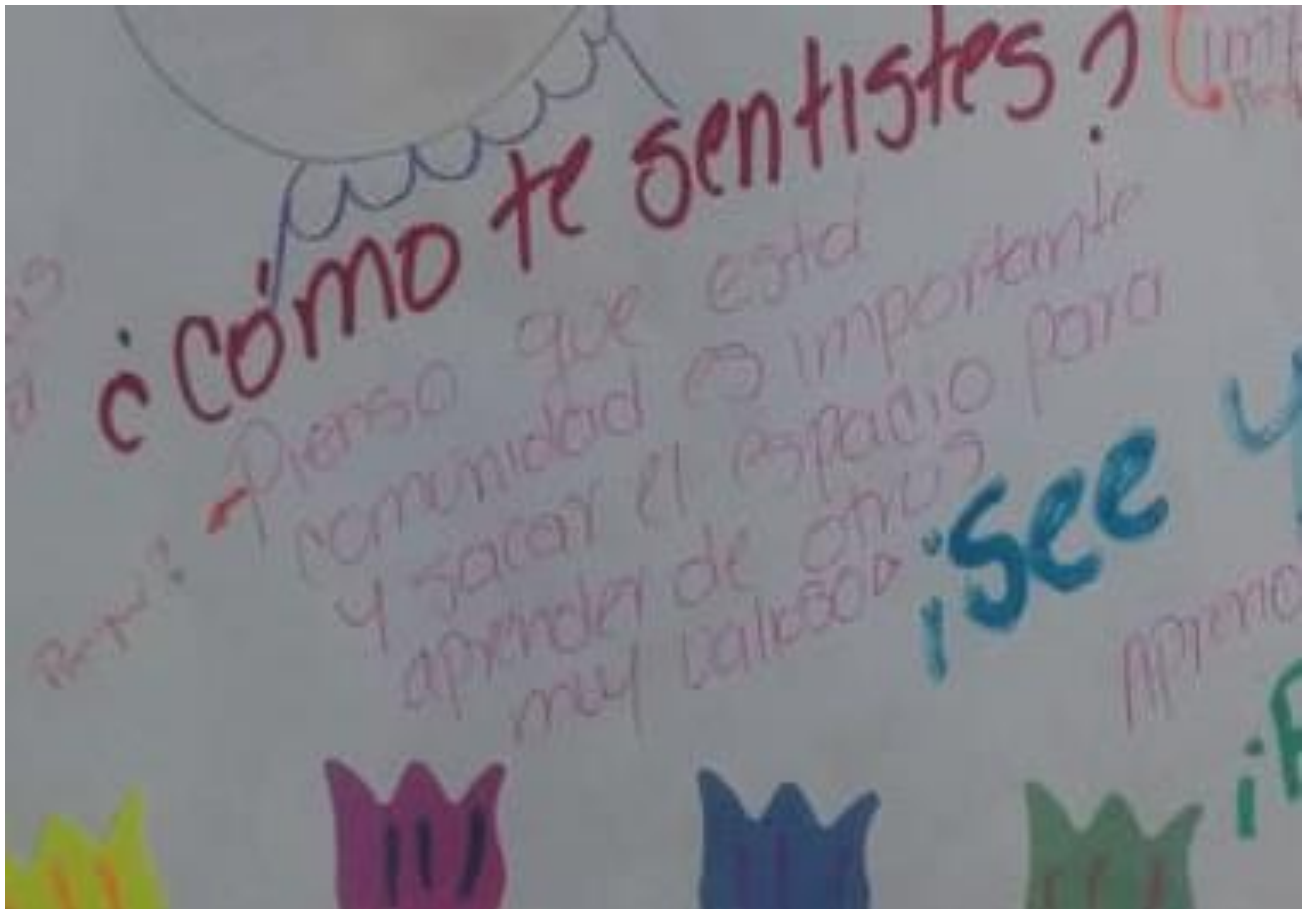 ¿Cómo te sentistes?
Pienso que está
comunidad es importante
y sacar el espacio para
aprender de otros
muy valioso
¡See y
Aprend